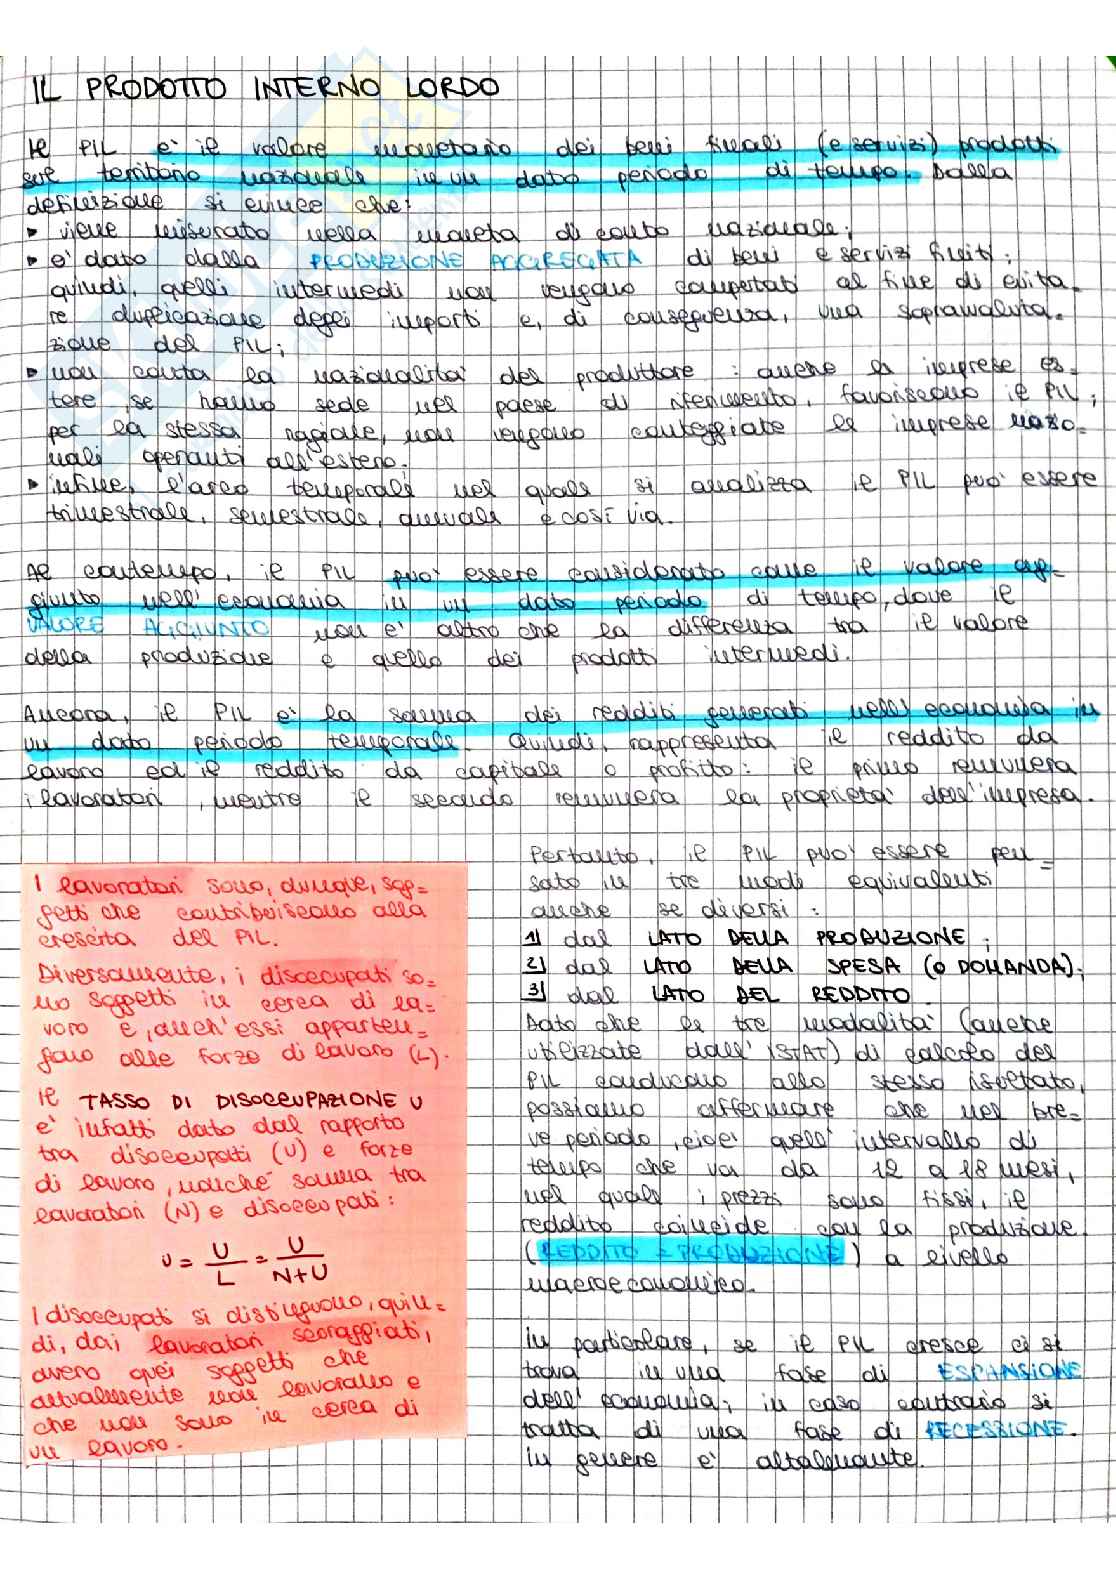 IL PRODOTTO INTERNO LORDO
Il PIL è il valore monetario dei beni finali (e servizi) prodotti
sul territorio nazionale in un dato periodo di tempo. Dalla
definizione si evince che:
▸ viene misurato nella moneta di conto nazionale;
▸ è dato dalla PRODUZIONE AGGREGATA di beni e servizi finiti;
quindi, quelli intermedi non vengono computati al fine di evita=
re duplicazione degli importi e, di conseguenza, una sopravaluta=
zione del PIL;
▸ non conta la nazionalità del produttore: anche le imprese es=
tere, se hanno sede nel paese di riferimento, favoriscono il PIL;
per la stessa ragione, non vengono conteggiate le imprese nazio=
nali operanti all'estero.
▸ infine, l'arco temporale nel quale si analizza il PIL può essere
trimestrale, semestrale, annuale e così via.
Al contempo, il PIL può essere considerato come il valore ag=
giunto nell'economia in un dato periodo di tempo, dove il
VALORE AGGIUNTO non è altro che la differenza tra il valore
della produzione e quello dei prodotti intermedi.
Ancora, il PIL è la somma dei redditi generati nell'economia in
un dato periodo temporale. Quindi, rappresenta il reddito da
lavoro ed il reddito da capitale o profitto: il primo remunera
i lavoratori, mentre il secondo remunera la proprietà dell'impresa.
I lavoratori sono, dunque, sog=
getti che contribuiscono alla
crescita del PIL.
Diversamente, i disoccupati so=
no soggetti in cerca di la=
voro e, anch'essi apparten=
gono alle forze di lavoro (L).
Il TASSO DI DISOCCUPAZIONE u
è infatti dato dal rapporto
tra disoccupati (U) e forze
di lavoro, nonché somma tra
lavoratori (N) e disoccupati:
u = U/L = U/N+U
I disoccupati si distinguono, quin=
di, dai lavoratori scoraggiati,
ovvero quei soggetti che
attualmente non lavorano e
che non sono in cerca di
un lavoro.
Pertanto, il PIL può essere pen=
sato in tre modi equivalenti
anche se diversi:
1) dal LATO DELLA PRODUZIONE;
2) dal LATO DELLA SPESA (o DOMANDA);
3) dal LATO DEL REDDITO.
Dato che le tre modalità (anche
utilizzate dall'ISTAT) di calcolo del
PIL conducono allo stesso risultato,
possiamo affermare che nel bre=
ve periodo, cioè quell'intervallo di
tempo che va da 12 a 18 mesi,
nel quale i prezzi sono fissi, il
reddito coincide con la produzione
(REDDITO = PRODUZIONE) a livello
macroeconomico.
In particolare, se il PIL cresce ci si
trova in una fase di ESPANSIONE
dell'economia; in caso contrario si
tratta di una fase di RECESSIONE.
In genere è altalenante.